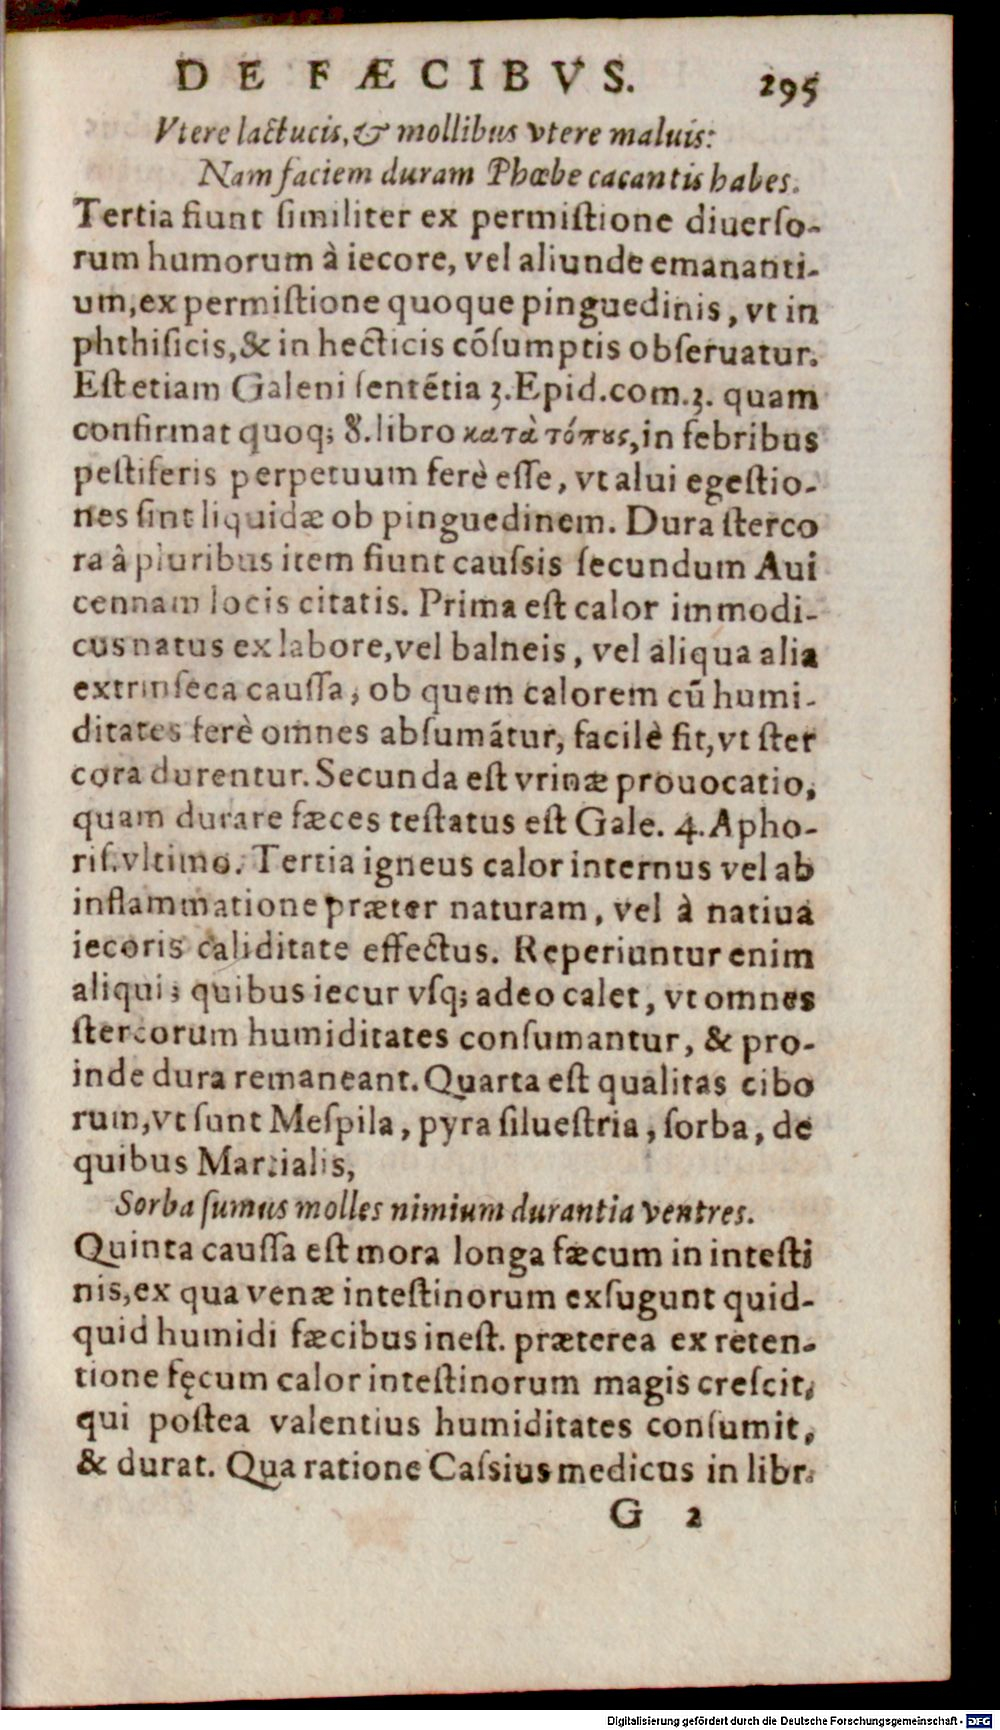 DE FÆCIBVS. 295
Vtere lactucis, & mollibus vtere maluis:
Nam faciem duram Phœbe cacantis habes.
Tertia fiunt ſimiliter ex permiſtione diuerſo-
rum humorum à iecore, vel aliunde emananti-
um, ex permiſtione quoque pinguedinis, vt in
phthiſicis, & in hecticis cõſumptis obſeruatur.
Eſt etiam Galeni ſentẽtia 3.Epid.com.3. quam
confirmat quoq; 8.libro κατὰ τόπȣς, in febribus
peſtiferis perpetuum ferè eſſe, vt alui egeſtio-
nes ſint liquidæ ob pinguedinem. Dura ſterco
ra à pluribus item fiunt cauſsis ſecundum Aui
cennam locis citatis. Prima eſt calor immodi-
cus natus ex labore, vel balneis, vel aliqua alia
extrinſeca cauſſa, ob quem calorem cũ humi-
ditates ferè omnes abſumãtur, facilè fit, vt ſter
cora durentur. Secunda eſt vrinæ prouocatio,
quam durare fæces teſtatus eſt Gale. 4. Apho-
riſ.vltimo. Tertia igneus calor internus vel ab
inflammatione præter naturam, vel à natiua
iecoris caliditate effectus. Reperiuntur enim
aliqui; quibus iecur vſq; adeo calet, vt omnes
ſtercorum humiditates conſumantur, & pro-
inde dura remaneant. Quarta eſt qualitas cibo
rum, vt ſunt Meſpila, pyra ſilueſtria, ſorba, de
quibus Martialis,
Sorba ſumus molles nimium durantia ventres.
Quinta cauſſa eſt mora longa fæcum in inteſti
nis, ex qua venæ inteſtinorum exſugunt quid-
quid humidi fæcibus ineſt. præterea ex reten-
tione fęcum calor inteſtinorum magis creſcit,
qui poſtea valentius humiditates conſumit,
& durat. Qua ratione Caſsius medicus in libr.
G 2
Digitalisierung gefördert durch die Deutsche Forschungsgemeinschaft - DFG